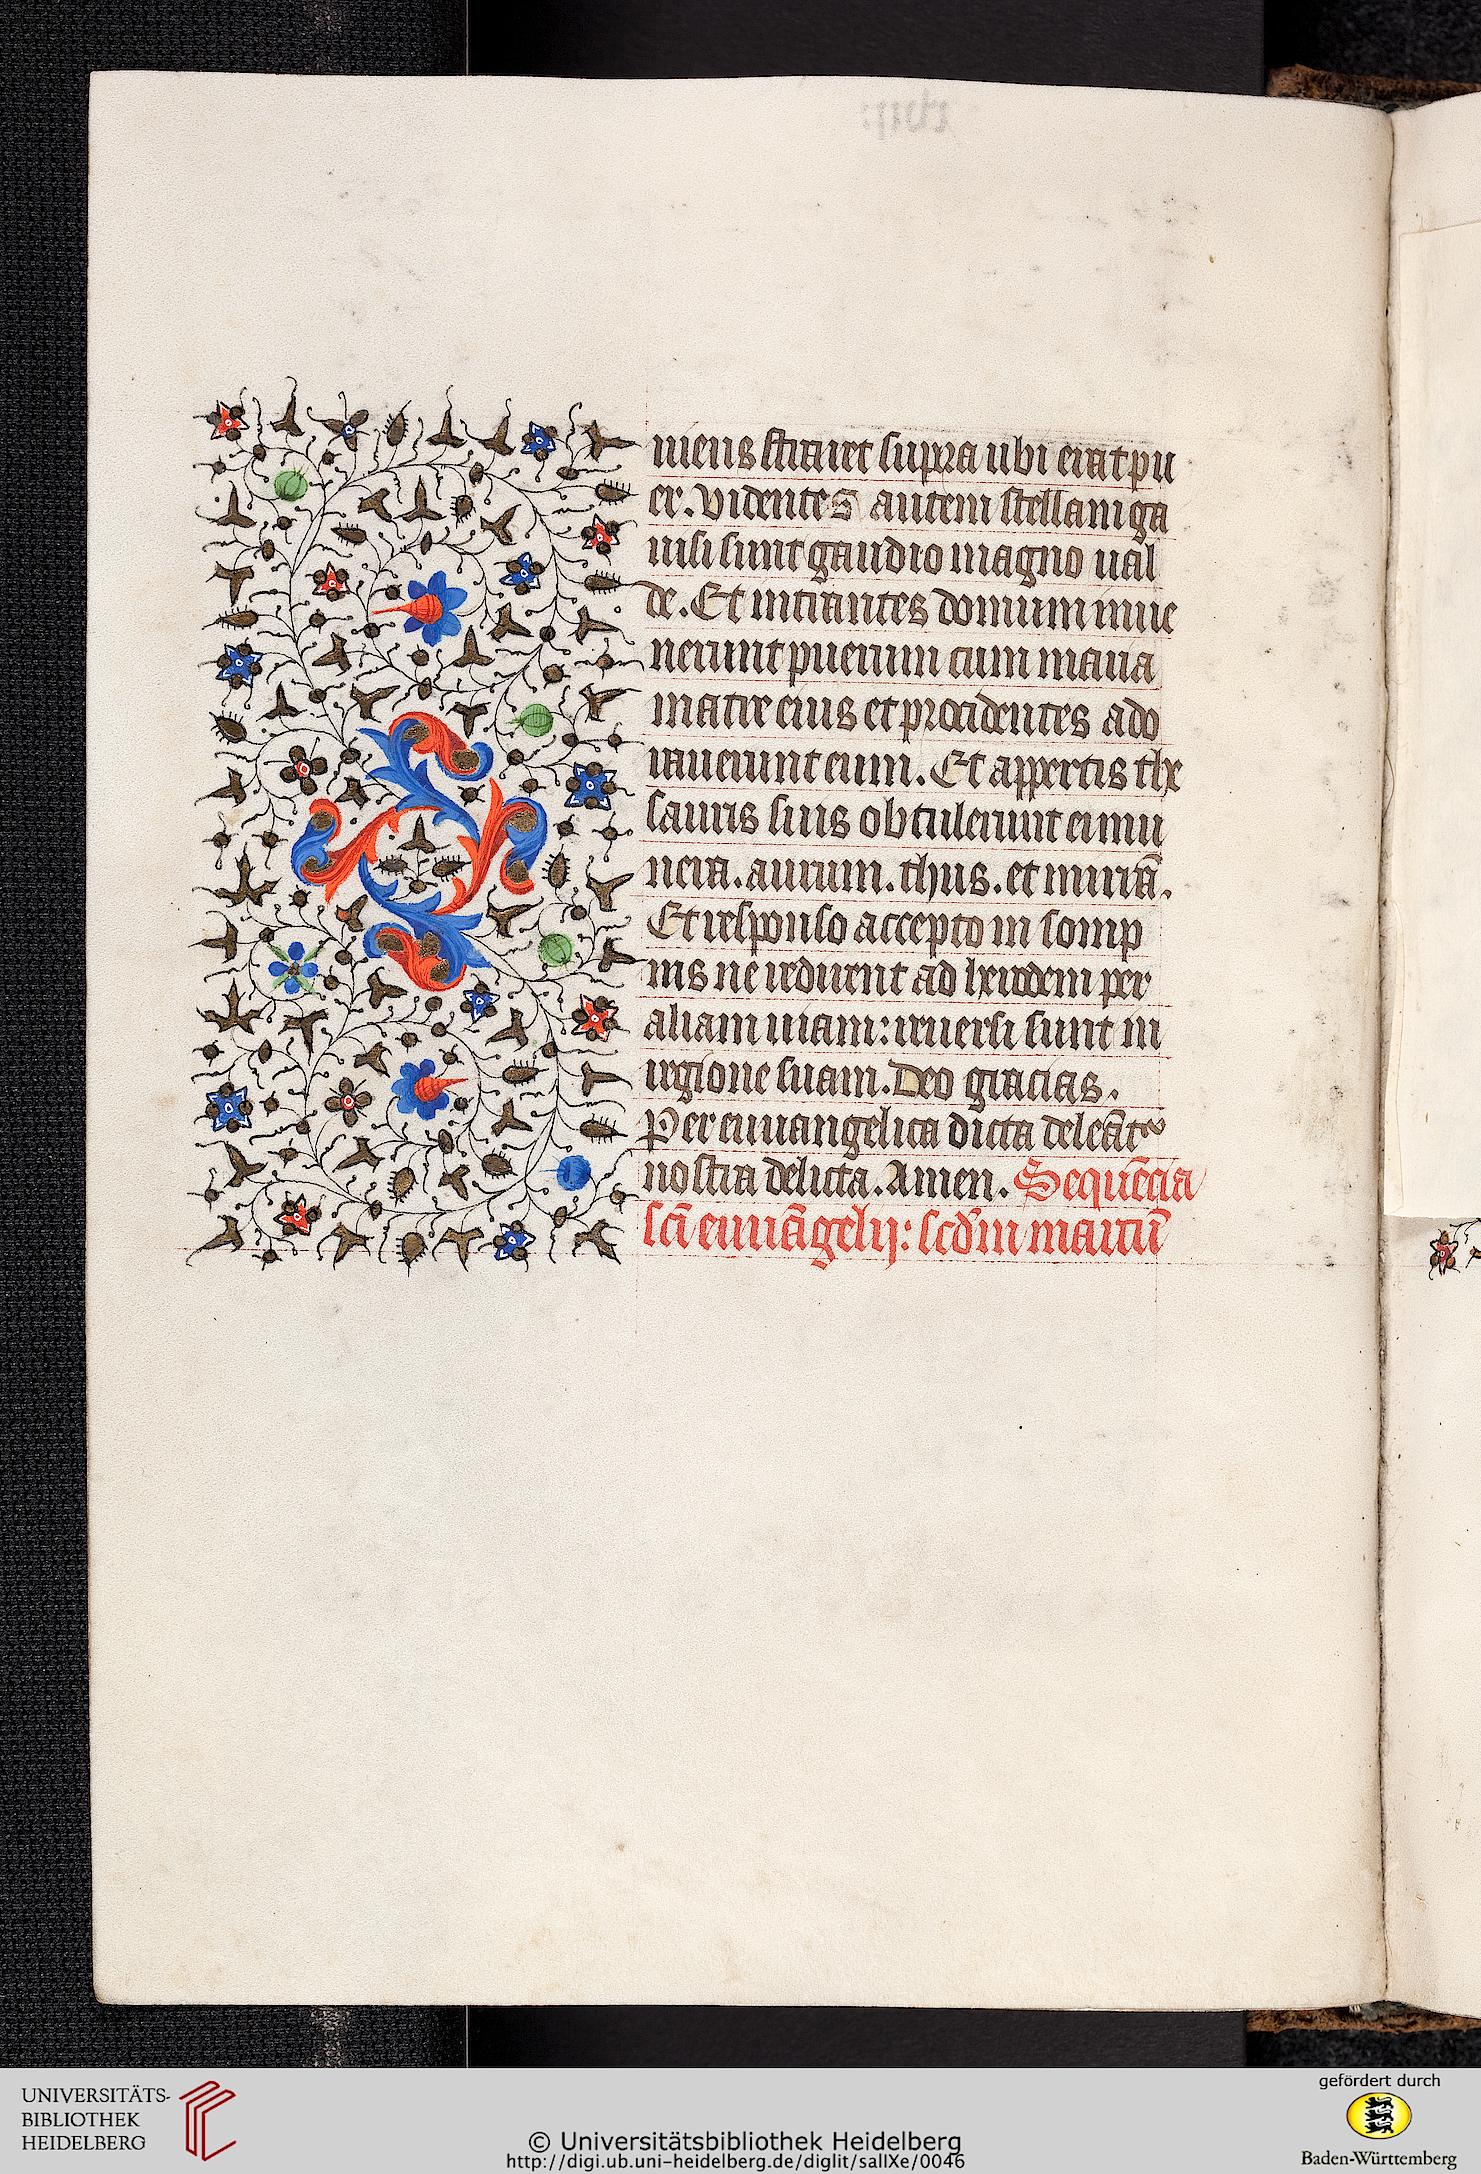 niens staret supra ubi erat pu
er. Videntes autem stellam ga
uisi sunt gaudio magno ual
de. Et intrantes domum inue
nerunt puerum cum maria
matre eius et procidentes ado
rauerunt eum. Et appertis the
sauris suis obtulerunt ei mu
nera. aurum. thus. et mirrā.
Et responso accepto in somp
nis ne redirent ad herodem per
aliam uiam: reuersi sunt in
regione suam. Deo gracias.
Per euuangelica dicta deleāt᷒
nostra delicta. Amen. Sequēcia
scī euuāgelij: scd'm marcū
UNIVERSITÄTS-
BIBLIOTHEK
HEIDELBERG
© Universitätsbibliothek Heidelberg
http://digi.ub.uni-heidelberg.de/diglit/salIXe/0046
gefördert durch
Baden-Württemberg